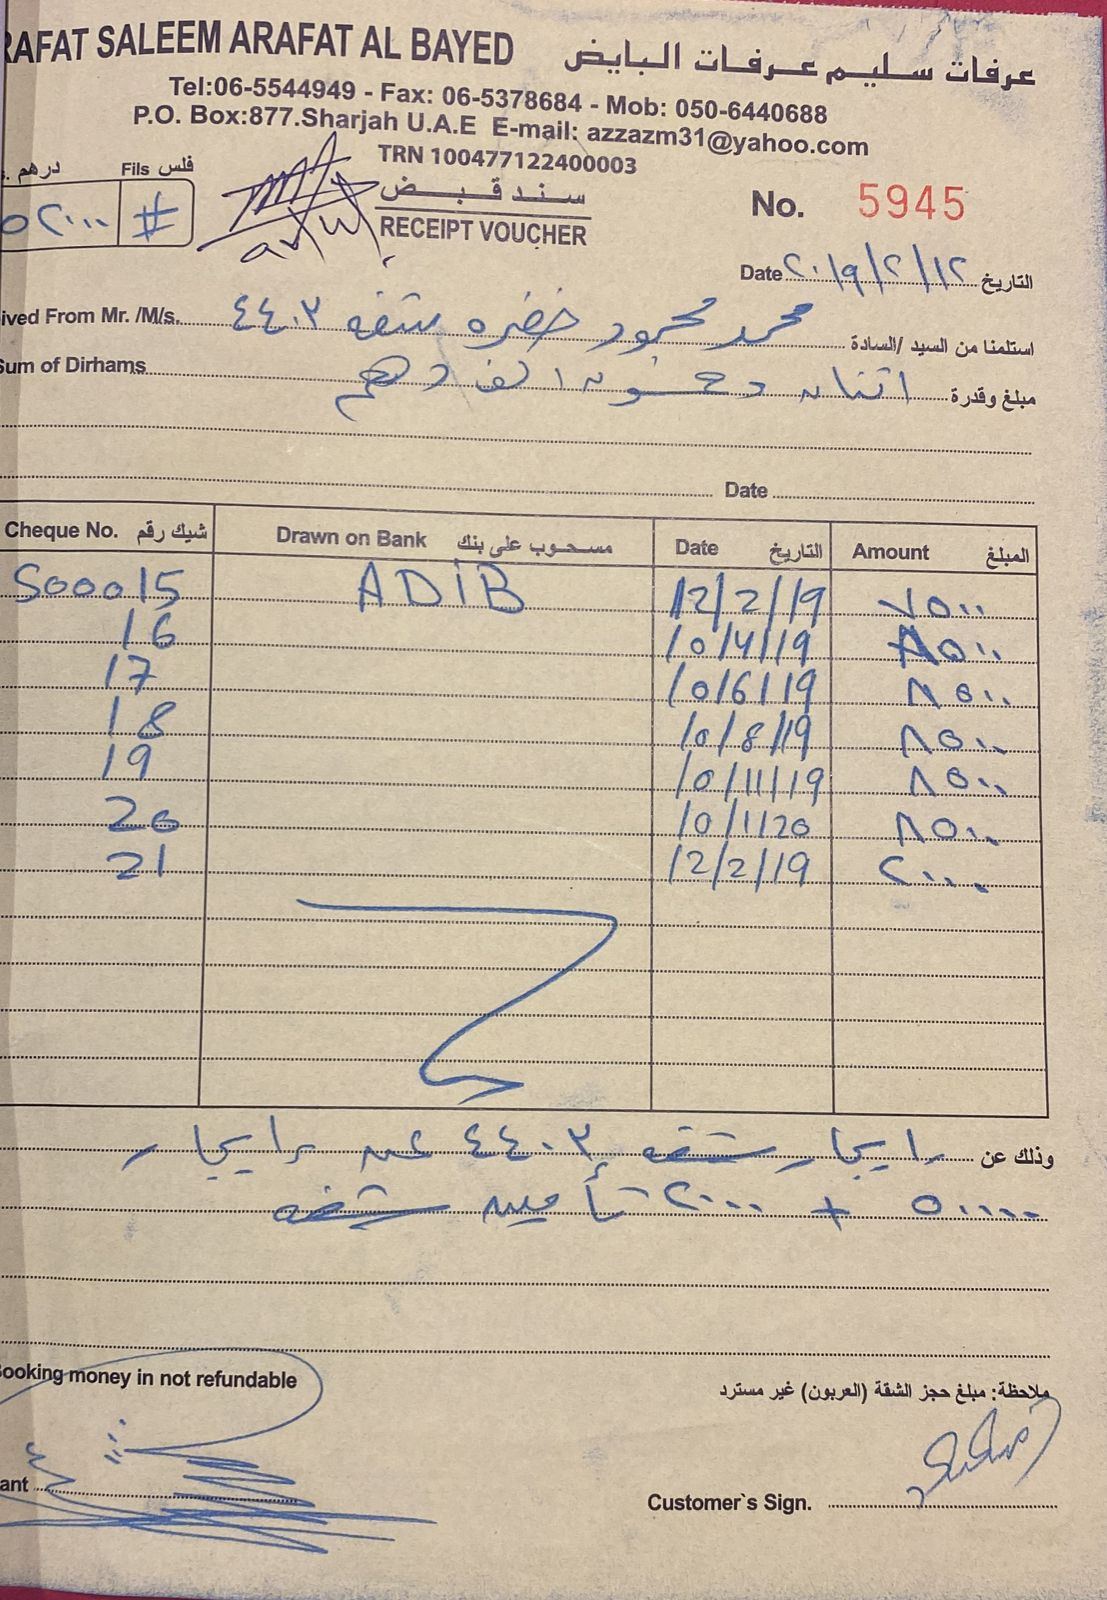 RAFAT SALEEM ARAFAT AL BAYED عرفات سليم عرفات البايض
Tel:06-5544949 - Fax: 06-5378684 - Mob: 050-6440688
P.O. Box:877.Sharjah U.A.E E-mail: azzazm31@yahoo.com
TRN 100477122400003
درهم Fils فلس
٥٢٠٠٠ #
سند قبض
RECEIPT VOUCHER
No. 5945
Date ٢٠١٩/٢/١٢ التاريخ
ived From Mr. /M/s. محمد محمود خضره شقه ٤٤٠٣ استلمنا من السيد /السادة
Sum of Dirhams اثنان وخمسون الف درهم مبلغ وقدرة
Date
Cheque No. شيك رقم Drawn on Bank مسحوب على بنك Date التاريخ Amount المبلغ
S00015 ADIB 12/2/19 ٧٥٠٠
16 10/4/19 ٨٥٠٠
17 10/6/19 ٨٥٠٠
18 10/8/19 ٨٥٠٠
19 10/11/19 ٨٥٠٠
20 10/1/20 ٨٥٠٠
21 12/2/19 ٢٠٠٠
وذلك عن ايجار شقه ٤٤٠٣ عن ايجار
٥٠٠٠٠ + ٢٠٠٠ تأمين شقه
Booking money in not refundable ملاحظة: مبلغ حجز الشقة (العربون) غير مسترد
ant Customer`s Sign.